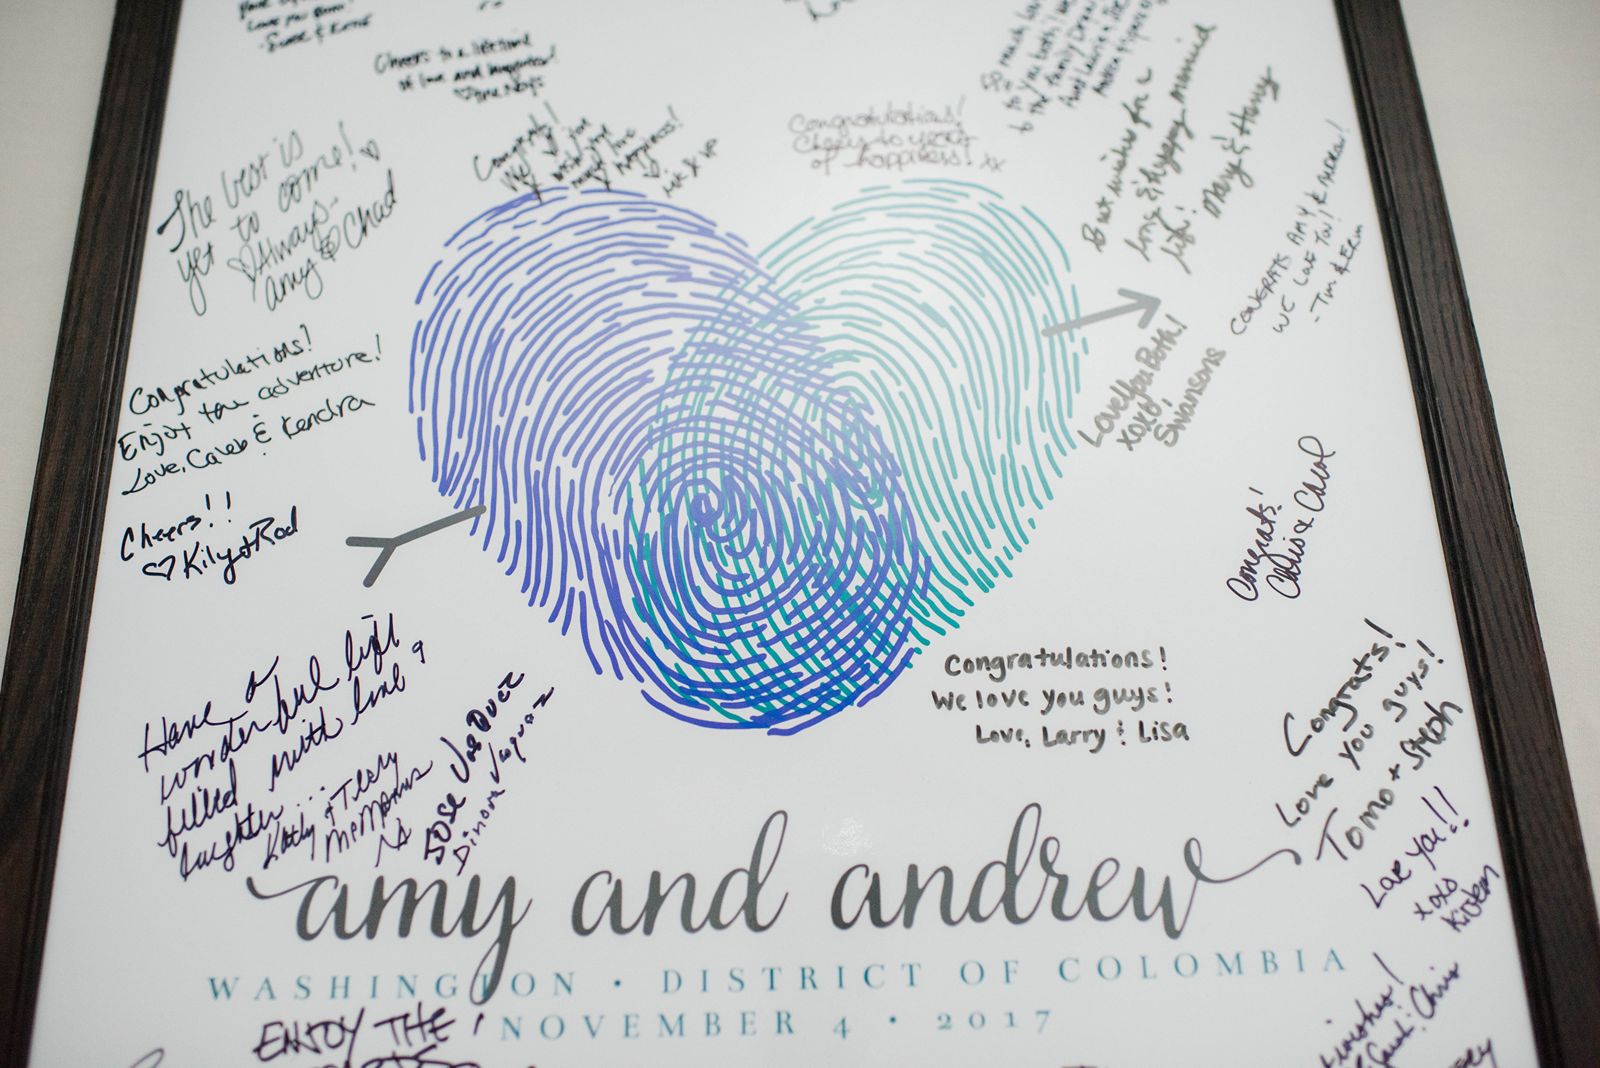 Love you Both!
Cheers to a lifetime
of love and happiness!
Congrats!
We
wish you
much love
& happiness!
Congratulations!
Cheers to years
of happiness! xx
so much love
to you both! 
to the family
Best wishes for a
long & happy married
life!
Mary & Harry
The best is
yet to come!
♡ Always
Amy & Chad
CONGRATS AMY & ANDREW!
WE LOVE YOU!
-Tim & Erin
Congratulations!
Enjoy the adventure!
Love, Caleb & Kendra
Love You Both!
XOXO,
Swansons
Cheers!!
♡ Kily + Rod
Congrats!
Chris & Carol
Have a
wonderful life
filled with love &
laughter...
Kathy & Terry
McManus
JOSE VASQUEZ
Dinora Vasquez
Congratulations!
We love you guys!
Love, Larry & Lisa
Congrats!
Love you guys!
Tomo + Steph
Love you!!
xoxo
Kristen
amy and andrew
WASHINGTON • DISTRICT OF COLOMBIA
NOVEMBER 4 • 2017
ENJOY THE
wishes!
Chris